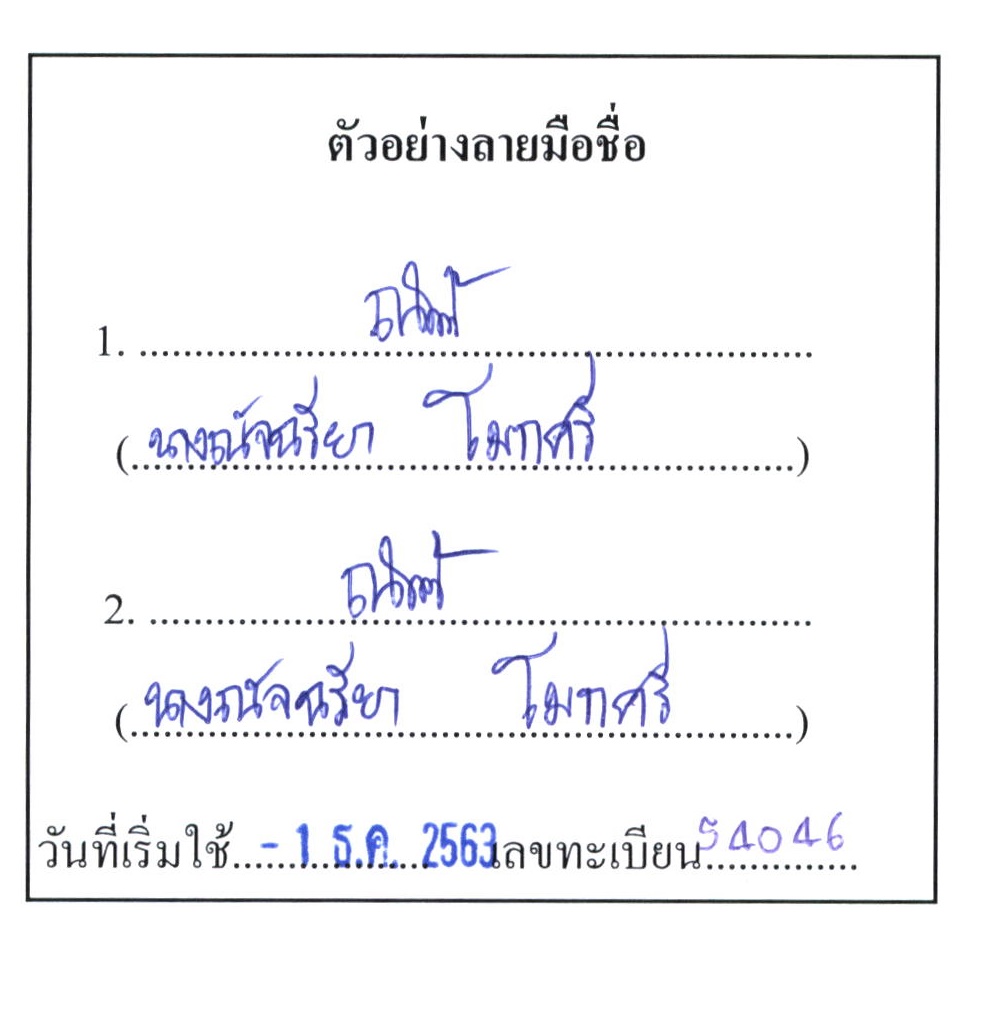 ตัวอย่างลายมือชื่อ
1.
(นางณัจฉรียา โมกศรี)
2.
(นางณัจฉรียา โมกศรี)
วันที่เริ่มใช้ - 1 ธ.ค. 2563 เลขทะเบียน 54046